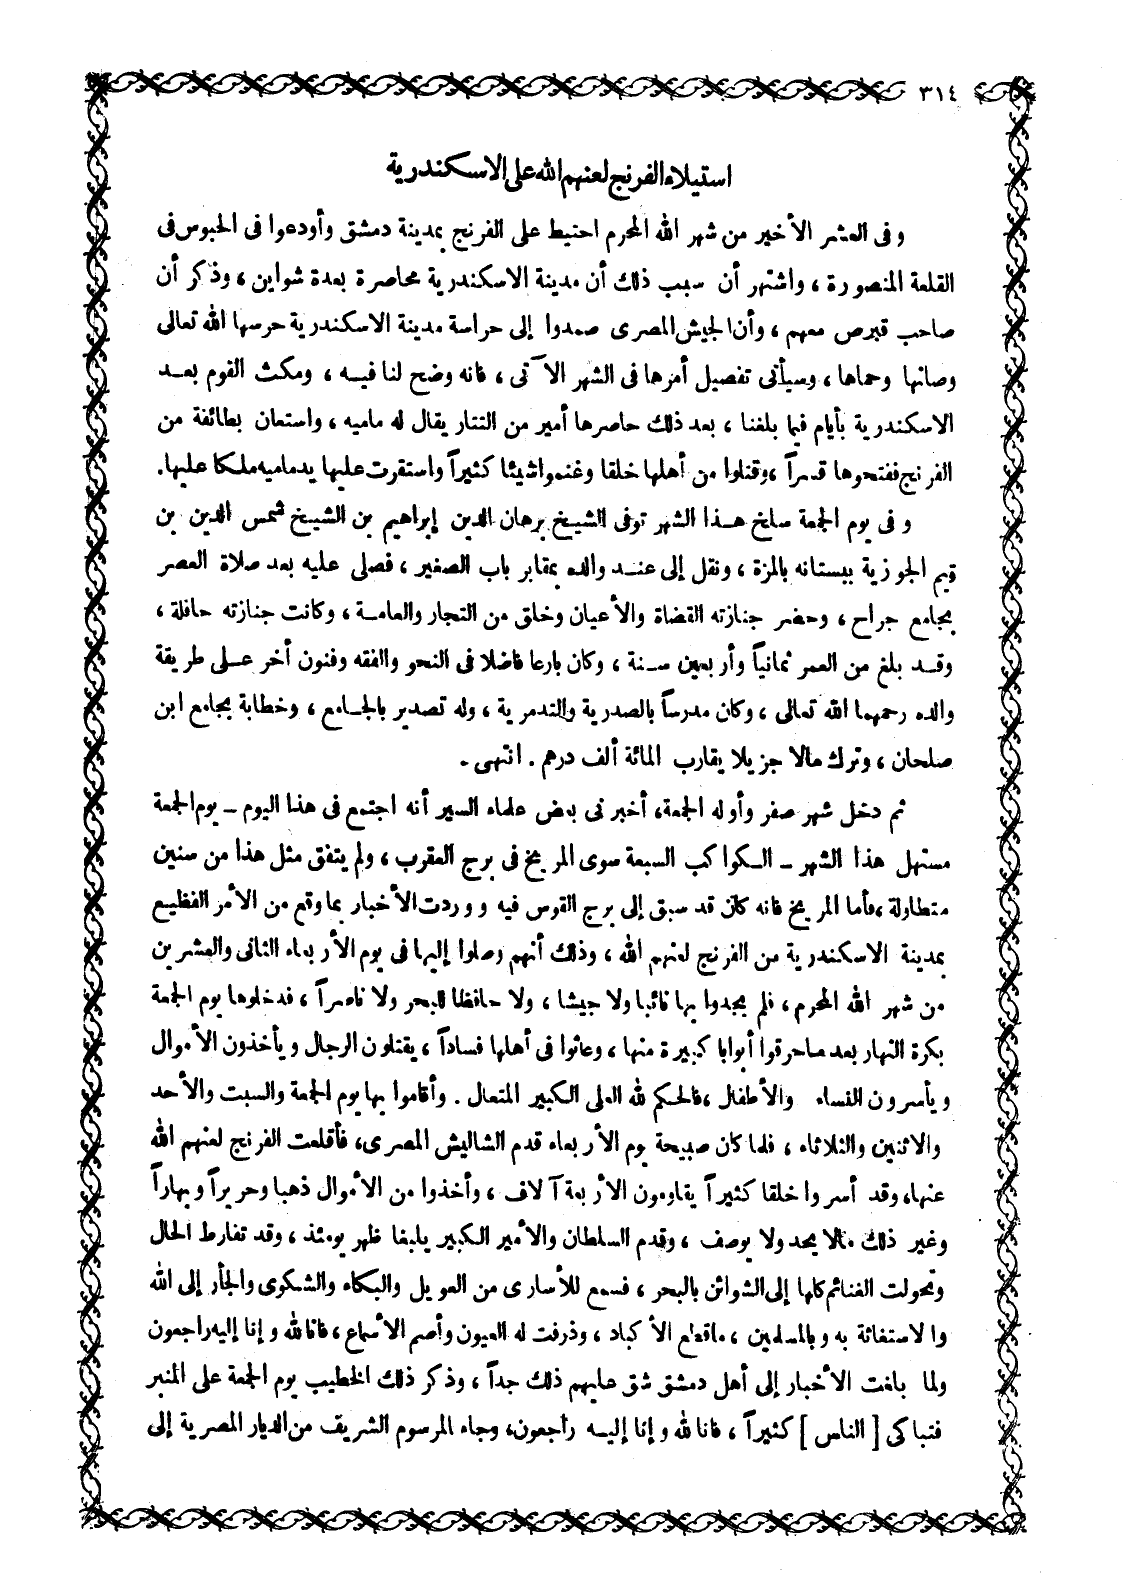 ٣١٤
استيلاء الفرنج لعنهم الله على الاسكندرية
وفى العشر الأخير من شهر الله المحرم احتيط على الفرنج بمدينة دمشق وأودعوا فى الحبوس فى
القلعة المنصورة ، واشتهر أن سبب ذلك أن مدينة الاسكندرية محاصرة بعدة شواين ، وذكر أن
صاحب قبرص معهم ، وأن الجيش المصرى صمدوا إلى حراسة مدينة الاسكندرية حرسها الله تعالى
وصانها وحماها ، وسيأتى تفصيل أمرها فى الشهر الآتى ، فانه وضح لنا فيه ، ومكث القوم بعد
الاسكندرية بأيام فيما بلغنا ، بعد ذلك حاصرها أمير من التتار يقال له ماميه ، واستعان بطائفة من
الفرنج ففتحوها قسراً ، وقتلوا من أهلها خلقا وغنموا شيئا كثيراً واستقرت عليها يد ماميه ملكا عليها.
وفى يوم الجمعة سلخ هذا الشهر توفى الشيخ برهان الدين إبراهيم بن الشيخ شمس الدين بن
قيم الجوزية ببستانه بالمزة ، ونقل إلى عند والده بمقابر باب الصغير ، فصلى عليه بعد صلاة العصر
بجامع جراح ، وحضر جنازته القضاة والأعيان وخلق من التجار والعامة ، وكانت جنازته حافلة ،
وقد بلغ من العمر ثمانياً وأربعين سنة ، وكان بارعا فاضلا فى النحو والفقه وفنون أخر على طريقة
والده رحمهما الله تعالى ، وكان مدرساً بالصدرية والتدمرية ، وله تصدير بالجامع ، وخطابة بجامع ابن
صلحان ، وترك مالا جزيلا يقارب المائة ألف درهم . انتهى .
ثم دخل شهر صفر وأوله الجمعة، أخبرنى بعض علماء السير أنه اجتمع فى هذا اليوم ـ يوم الجمعة
مستهل هذا الشهر ـ الكواكب السبعة سوى المريخ فى برج العقرب ، ولم يتفق مثل هذا من سنين
متطاولة ، فأما المريخ فانه كان قد سبق إلى برج القوس فيه ووردت الأخبار بما وقع من الأمر الفظيع
بمدينة الاسكندرية من الفرنج لعنهم الله ، وذلك أنهم وصلوا إليها فى يوم الأربعاء الثانى والعشرين
من شهر الله المحرم ، فلم يجدوا بها نائبا ولا جيشا ، ولا حافظا للبحر ولا ناصراً ، فدخلوها يوم الجمعة
بكرة النهار بعد ما حرقوا أبوابا كبيرة منها ، وعاثوا فى أهلها فساداً ، يقتلون الرجال ويأخذون الأموال
ويأسرون النساء والأطفال ، فالحكم لله العلى الكبير المتعال . وأقاموا بها يوم الجمعة والسبت والأحد
والاثنين والثلاثاء ، فلما كان صبيحة يوم الأربعاء قدم الشاليش المصرى، فأقلعت الفرنج لعنهم الله
عنها، وقد أسروا خلقا كثيراً يقاومون الأربعة آلاف ، وأخذوا من الأموال ذهبا وحريراً وبهاراً
وغير ذلك مالا يحد ولا يوصف ، وقدم السلطان والأمير الكبير يلبغا ظهر يومئذ ، وقد تفارط الحال
وتحولت الغنائم كلها إلى الشوائن بالبحر ، فسمع للأسارى من العويل والبكاء والشكوى والجأر إلى الله
والاستغاثة به وبالمسلمين ، ما قطع الأكباد ، وذرفت له العيون وأصم الأسماع ، فانا لله وإنا إليه راجعون
ولما بلغت الأخبار إلى أهل دمشق شق عليهم ذلك جداً ، وذكر ذلك الخطيب يوم الجمعة على المنبر
فتباكى [ الناس ] كثيراً ، فانا لله وإنا إليه راجعون، وجاء المرسوم الشريف من الديار المصرية إلى